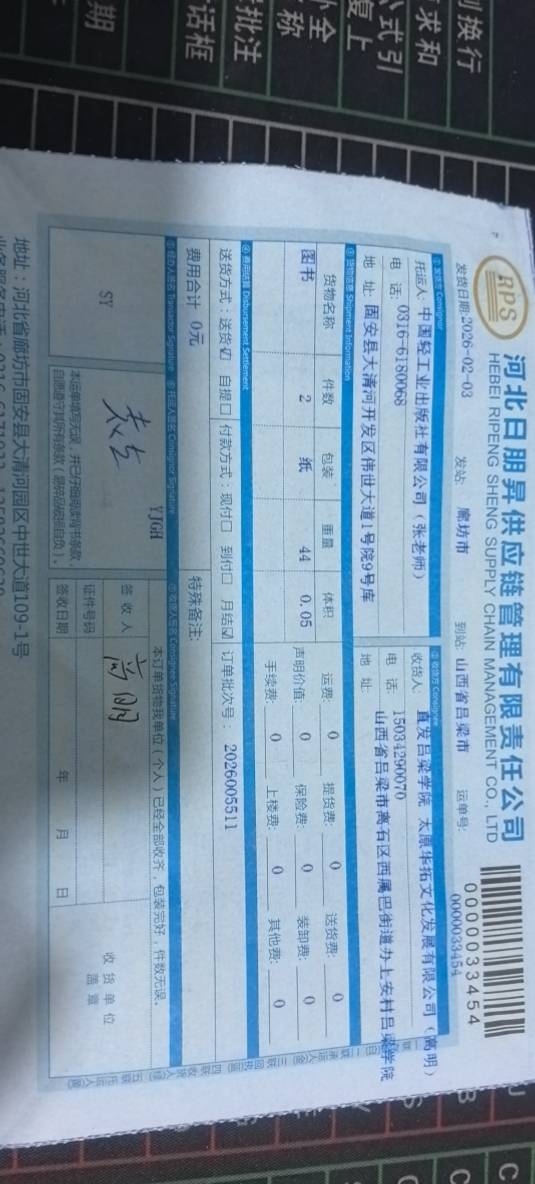 RPS
河北日朋昇供应链管理有限责任公司
HEBEI RIPENG SHENG SUPPLY CHAIN MANAGEMENT CO., LTD
0000033454
发货日期:2026-02-03 发站: 廊坊市 到站: 山西省吕梁市 运单号: 0000033454
① 发货方 Consignor
托运人: 中国轻工业出版社有限公司（张老师）
电 话: 0316-6180068
地 址: 固安县大清河开发区伟世大道1号院9号库
② 收货方 Consignee
收货人: 直发吕梁学院 太原华拓文化发展有限公司（高明）
电 话: 15034290070
地 址: 山西省吕梁市离石区西属巴街道办上安村吕梁学院
③ 货物信息 Shipment Information
货物名称 件数 包装 重量 体积
图书 2 纸 44 0.05
运费: 0 提货费: 0 送货费: 0
声明价值: 0 保险费: 0 装卸费: 0
手续费: 0 上楼费: 0 其他费: 0
④ 费用结算 Disbursement Settlement
送货方式: 送货☑ 自提☐ 付款方式: 现付☐ 到付☐ 月结☑ 订单批次号: 2026005511
费用合计 0元
特殊备注:
⑤ 经办人签名 Transactor Signature
⑥ 托运人签名 Consignor Signature
⑦ 收货人签名 Consignee Signature
SY
YJGH
本运单填写无误，并已仔细阅读背书条款
自愿遵守其所有条款
本订单货物我单位（个人）已经全部收齐，包装完好，件数无误。
签收人 高明
证件号码
签收日期 年 月 日
收货单位
盖章
地址：河北省廊坊市固安县大清河园区中世大道109-1号
换行
求和
式引
复上
外全
称
批注
话框
期